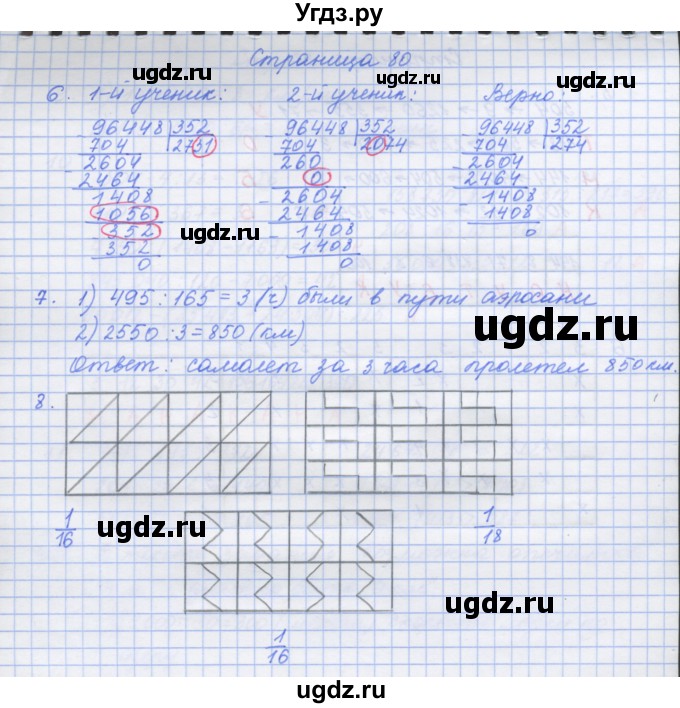 Угдз.ру
Страница 80
ugdz.ru ugdz.ru ugdz.ru
6. 1-й ученик: 2-й ученик: Верно:
96448 |352 96448 |352 96448 |352
704 2731 704 2074 704 274
2604 260 2604
2464 0 2464
1408 2604 1408
1056 2464 1408
352 1408 0
352 1408
0 0
ugdz.ru
7. 1) 495 : 165 = 3 (ч) были в пути аэросани
2) 2550 : 3 = 850 (км)
ugdz.ru
Ответ: самолет за 3 часа пролетел 850 км.
ugdz.ru
8.
1/16 1/18
ugdz.ru
1/16
ugdz.ru
ugdz.ru
Угдз.ру